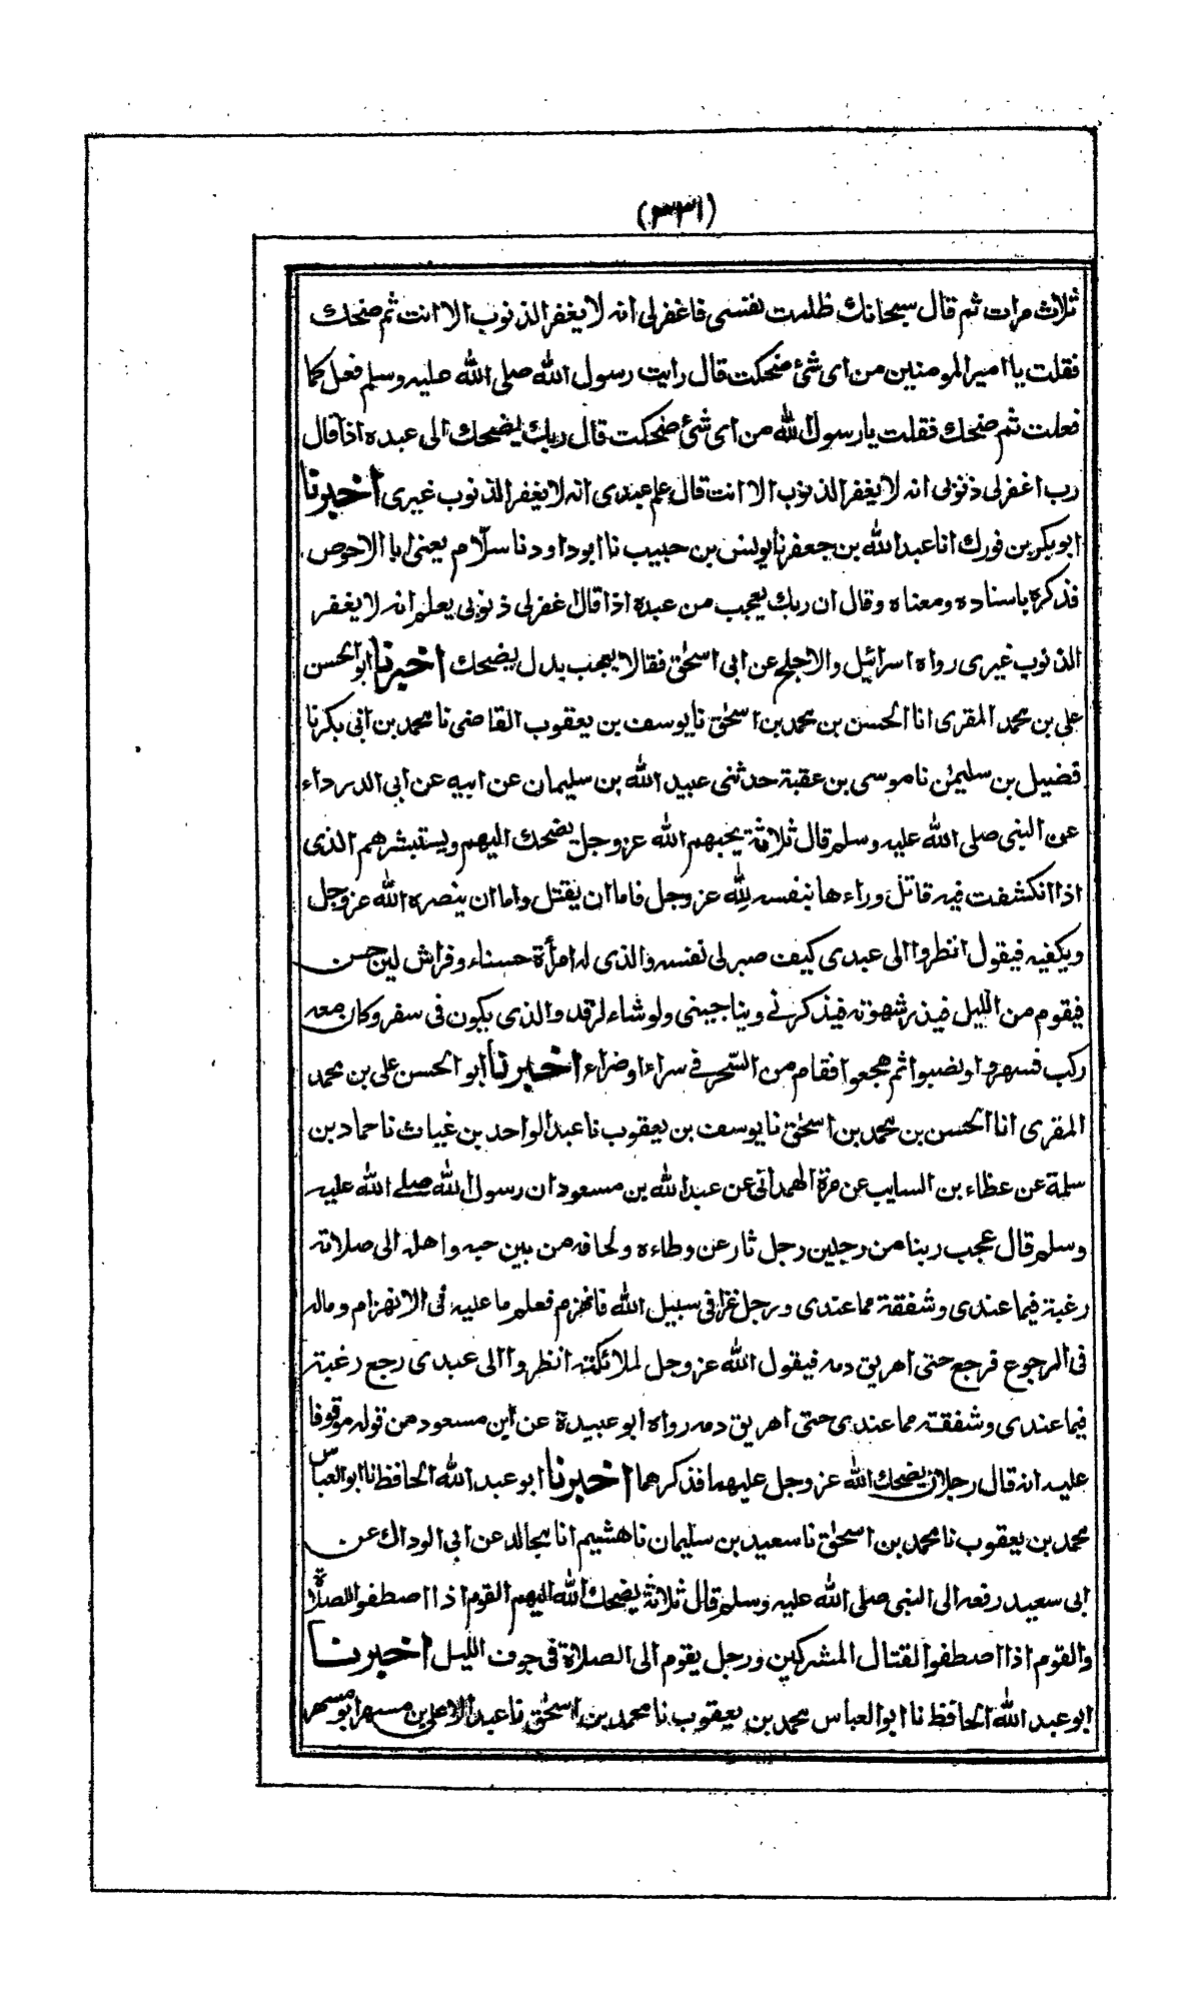 (٣٣١)
ثلاث مرات ثم قال سبحانك ظلمت نفسى فاغفرلى انه لا يغفر الذنوب الا انت ثم ضحك
فقلت يا امير المومنين من اى شئ ضحكت قال رايت رسول الله صلى الله عليه وسلم فعل كما
فعلت ثم ضحك فقلت يا رسول الله من اى شئ ضحكت قال ربك ليضحك الى عبده اذا قال
رب اغفرلى ذنوبى انه لا يغفر الذنوب الا انت قال علم عبدى انه لا يغفر الذنوب غيرى اخبرنا
ابو بكر بن فورك انا عبد الله بن جعفر نا يونس بن حبيب نا ابو داود نا سلّام يعنى ابا الاحوص
فذكره باسناده ومعناه وقال ان ربك يعجب من عبده اذا قال اغفرلى ذنوبى يعلم انه لا يغفر
الذنوب غيرى رواه اسرائيل والاجلح عن ابى اسحٰق فقالا يعجب بدل يضحك اخبرنا ابو الحسن
على بن محمد المقرى انا الحسن بن محمد بن اسحٰق نا يوسف بن يعقوب القاضى نا محمد بن ابى بكر نا
فضيل بن سليمٰن نا موسى بن عقبة حدثنى عبيد الله بن سليمان عن ابيه عن ابى الدرداء
عن النبى صلى الله عليه وسلم قال ثلاثة يحبهم الله عز وجل يضحك اليهم ويستبشر هم الذى
اذا انكشفت فيه قاتل وراءها بنفسه لله عز وجل فاما ان يقتل واما ان ينصره الله عز وجل
ويكفيه فيقول انظروا الى عبدى كيف صبر لى نفسه والذى له امرأة حسناء وفراش لين حسن
فيقوم من الليل فيذر شهوته فيذكرنے ويناجينى ولو شاء لرقد والذى يكون فى سفر وكان معه
ركب فسهروا ونصبوا ثم هجعوا فقام من السّحر فے سراء او ضراء اخبرنا ابو الحسن على بن محمد
المقرى انا الحسن بن محمد بن اسحٰق نا يوسف بن يعقوب نا عبد الواحد بن غياث نا حماد بن
سلمة عن عطاء بن السايب عن مرة الهمدانى عن عبد الله بن مسعود ان رسول الله صلے الله عليه
وسلم قال عجب ربنا من رجلين رجل ثار عن وطاءه ولحافه من بين حبه واهله الى صلاته
رغبة فيما عندى وشفقة مما عندى ورجل غزا فى سبيل الله فانهزم فعلم ما عليه فى الانهزام وماله
فى الرجوع فرجع حتى اهريق دمه فيقول الله عز وجل لملائكته انظروا الى عبدى رجع رغبة
فيما عندى وشفقة مما عندى حتى اهريق دمه رواه ابو عبيدة عن ابن مسعود من قوله موقوفا
عليه انه قال رجلان يضحك الله عز وجل عليهما فذكرهما اخبرنا ابو عبد الله الحافظ نا ابو العباس
محمد بن يعقوب نا محمد بن اسحٰق نا سعيد بن سليمان نا هشيم انا مجالد عن ابى الوداك عن
ابى سعيد رفعه الى النبى صلى الله عليه وسلم قال ثلاثة يضحك الله اليهم القوم اذا اصطفوا للصلاة
والقوم اذا اصطفوا لقتال المشركين ورجل يقوم الى الصلاة فى جوف الليل اخبرنا
ابو عبد الله الحافظ نا ابو العباس محمد بن يعقوب نا محمد بن اسحٰق نا عبد الاعلى بن مسهر ابو مسهر